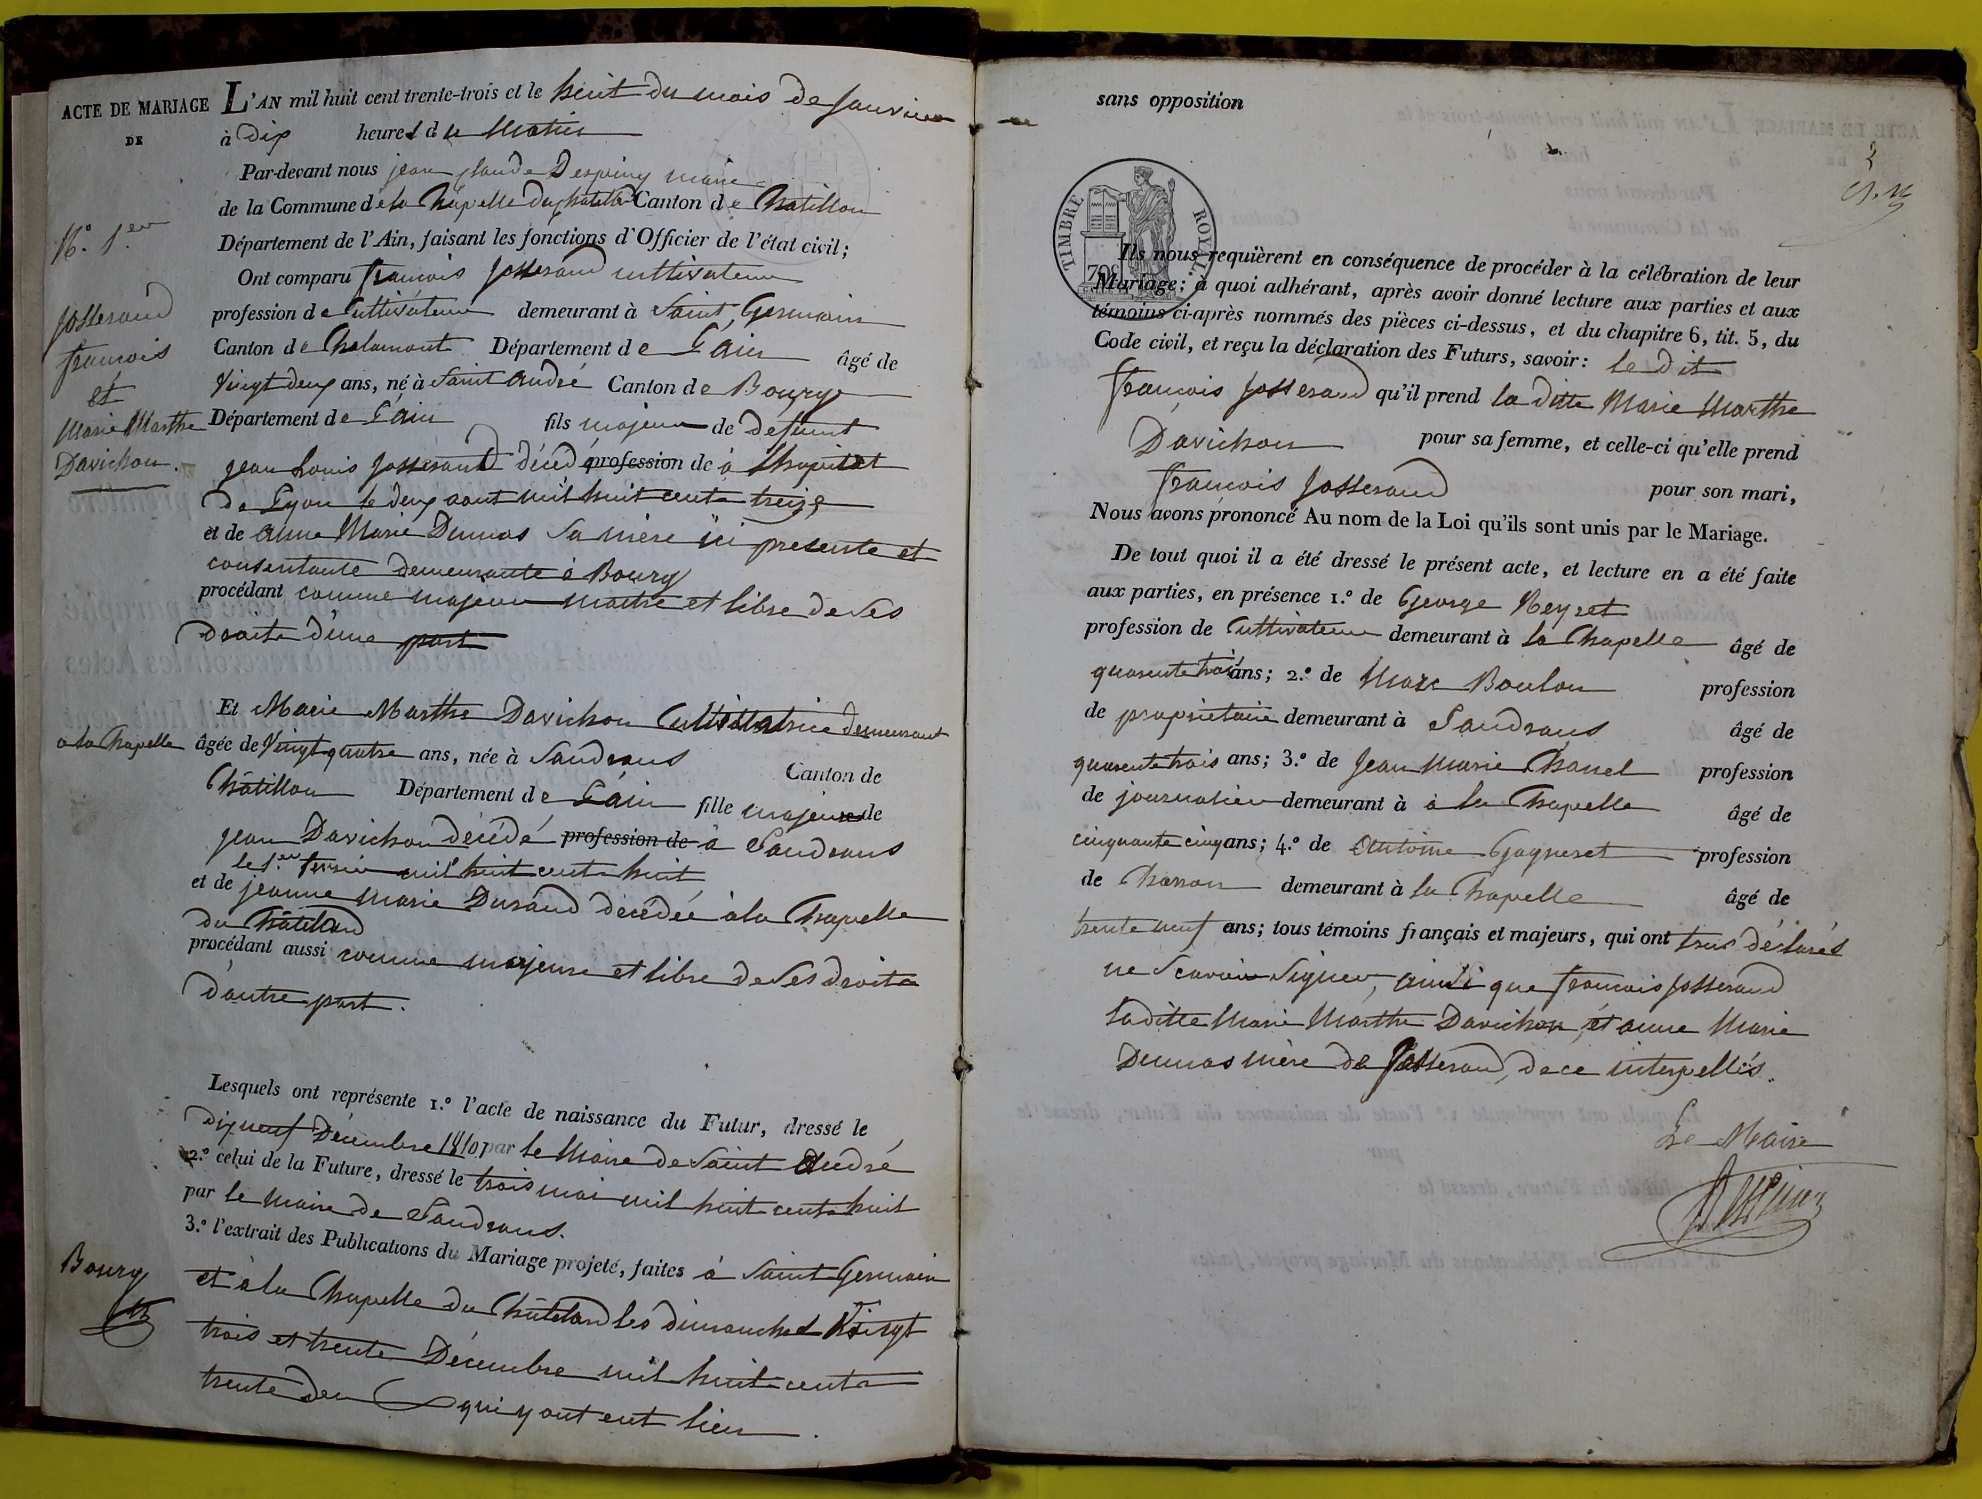 ACTE DE MARIAGE
DE
N.º 1.er
Josserand
francois
et
Marie Marthe
Davichon.
L'AN mil huit cent trente-trois et le huit du mois de Janvier
à Dix heures du Matin
Par-devant nous jean claude Despiney maire
de la Commune de la Chapelle du chatelard Canton de Chatillon
Département de l'Ain, faisant les fonctions d'Officier de l'état civil;
Ont comparu francois Josserand cultivateur
profession de Cultivateur demeurant à Saint Germain
Canton de Chalamont Département de L'ain âgé de
Vingt deux ans, né à Saint André Canton de Bourg
Département de L'ain fils majeur de defunt
jean Louis Josserand décédé profession de à l'hopital
de Lyon le deux aout mil huit cents treize
et de anne Marie Dumas Sa mère ici presente et
consentante demeurante à Bourg
procédant comme majeur maitre et libre de Ses
droits d'une part
Et Marie Marthe Davichon Cultivatrice demeurant
a la Chapelle âgée de Vingt quatre ans, née à Sandrans Canton de
Châtillon Département de L'ain fille majeure de
jean Davichon décédé profession de à Sandrans
le 1.er fevrier mil huit cents huit
et de jeanne Marie Durand décédée à la Chapelle
du Châtelard
procédant aussi comme majeure et libre de Ses droits
d'autre part.
Lesquels ont représente 1.º l'acte de naissance du Futur, dressé le
Dix neuf Décembre 1810 par le Maire de Saint André
2.º celui de la Future, dressé le trois mai mil huit cents huit
par le maire de Sandrans.
3.º l'extrait des Publications du Mariage projeté, faites à Saint Germain
Bourg
et à la Chapelle du Châtelard les dimanches Vingt
trois et trente Décembre mil huit cents
trente deu qui y ont eut lieu
sans opposition
2
TIMBRE ROYAL.
70c
Ils nous requièrent en conséquence de procéder à la célébration de leur
Mariage; à quoi adhérant, après avoir donné lecture aux parties et aux
témoins ci-après nommés des pièces ci-dessus, et du chapitre 6, tit. 5, du
Code civil, et reçu la déclaration des Futurs, savoir: le dit
francois Josserand qu'il prend la ditte Marie Marthe
Davichon pour sa femme, et celle-ci qu'elle prend
francois Josserand pour son mari,
Nous avons prononcé Au nom de la Loi qu'ils sont unis par le Mariage.
De tout quoi il a été dressé le présent acte, et lecture en a été faite
aux parties, en présence 1.º de George Reyret
profession de Cultivateur demeurant à la Chapelle âgé de
quarente trois ans; 2.º de Marc Boulon profession
de proprietaire demeurant à Sandrans âgé de
quarente trois ans; 3.º de Jean Marie Chanel profession
de journalier demeurant à à la Chapelle âgé de
cinquante cinq ans; 4.º de Antoine Gagneret profession
de Charron demeurant à la Chapelle âgé de
trente neuf ans; tous témoins français et majeurs, qui ont tous déclarés
ne Scavoir Signer, ainsi que francois Josserand
ladite Marie Marthe Davichon, et anne Marie
Dumas mère de Josserand, de ce interpellés.
Le Maire